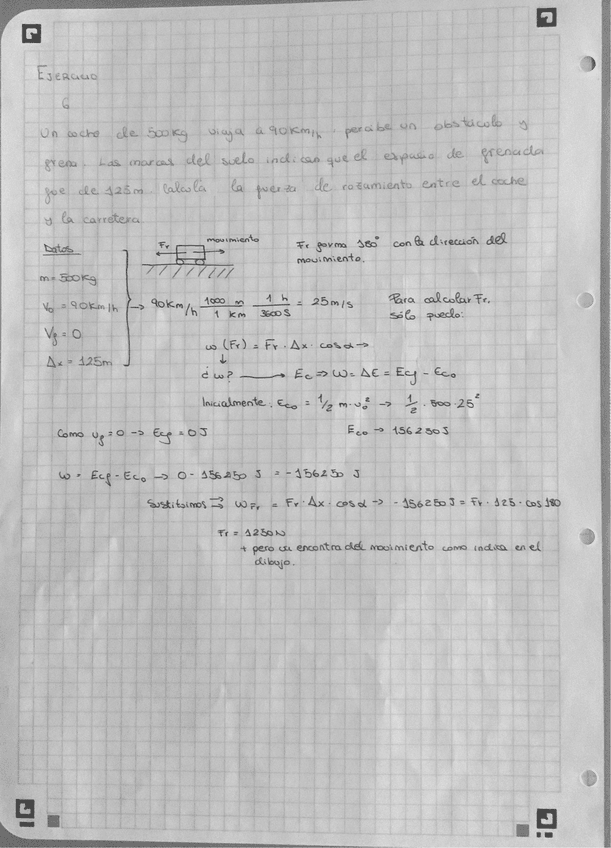 Ejercicio
6
Un coche de 500kg viaja a 90Km/h, percibe un obstáculo y
frena. Las marcas del suelo indican que el espacio de frenada
fue de 125m. Calcula la fuerza de rozamiento entre el coche
y la carretera
Datos
m = 500Kg
V₀ = 90Km/h
Vf = 0
Δx = 125m
Fr movimiento
Fr forma 180° con la dirección del
movimiento.
→ 90Km/h 1000 m / 1 Km 1 h / 3600 s = 25m/s
Para calcular Fr,
sólo puedo:
w (Fr) = Fr · Δx · cos α →
↓
¿w? → Ec ⇒ W = ΔE = Ecf - Ec₀
Inicialmente, Ec₀ = 1/2 m·v₀² → 1/2 · 500·25²
Como vf = 0 → Ecf = 0 J
Ec₀ → 156250 J
W = Ecf - Ec₀ → 0 - 156250 J = -156250 J
Sustituimos ⇒ W Fr = Fr · Δx · cos α → -156250 J = Fr · 125 · cos 180
Fr = 1250 N
→ pero en encontra del movimiento como indica en el
dibujo.